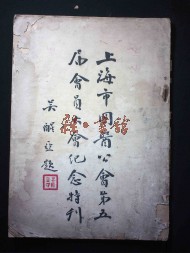 上海市國醫公會第五
屆會員大會紀念特刊
吳醒亞題